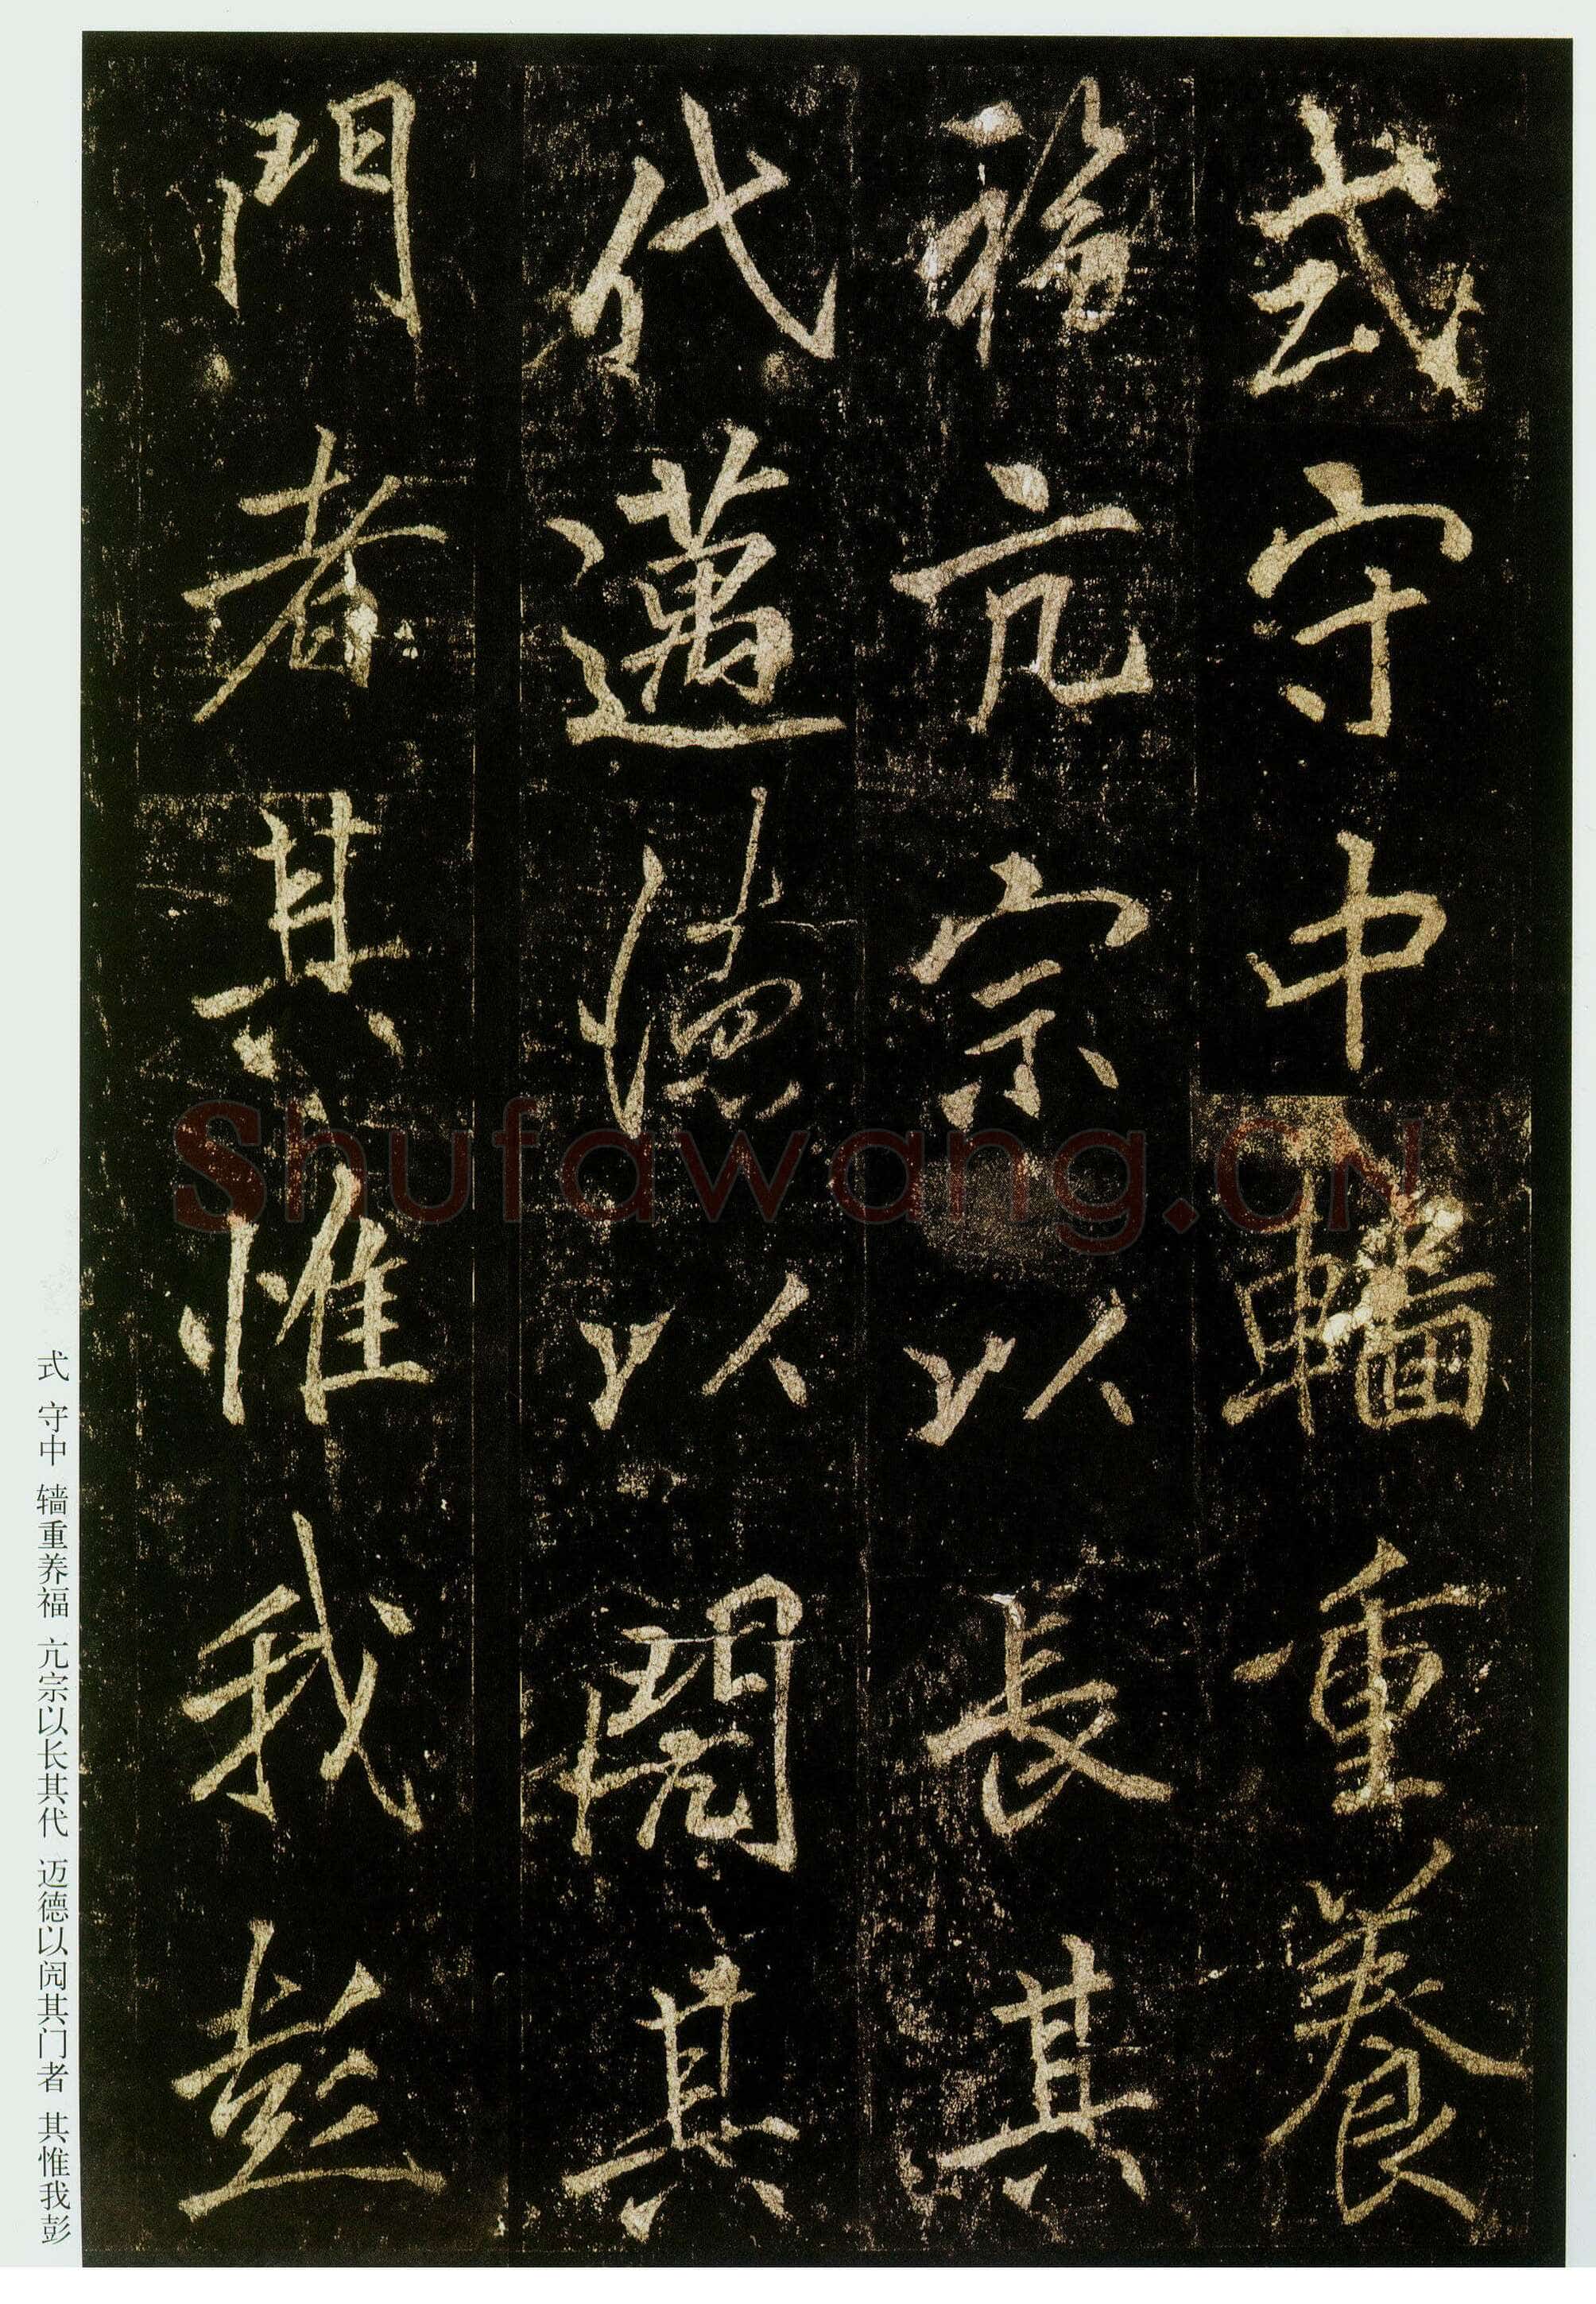 式守中轖重養
福亢宗以長其
代邁德以閌其
門者其惟我彭
式 守中 轖重养福 亢宗以长其代 迈德以闶其门者 其惟我彭
Shufawang.CN